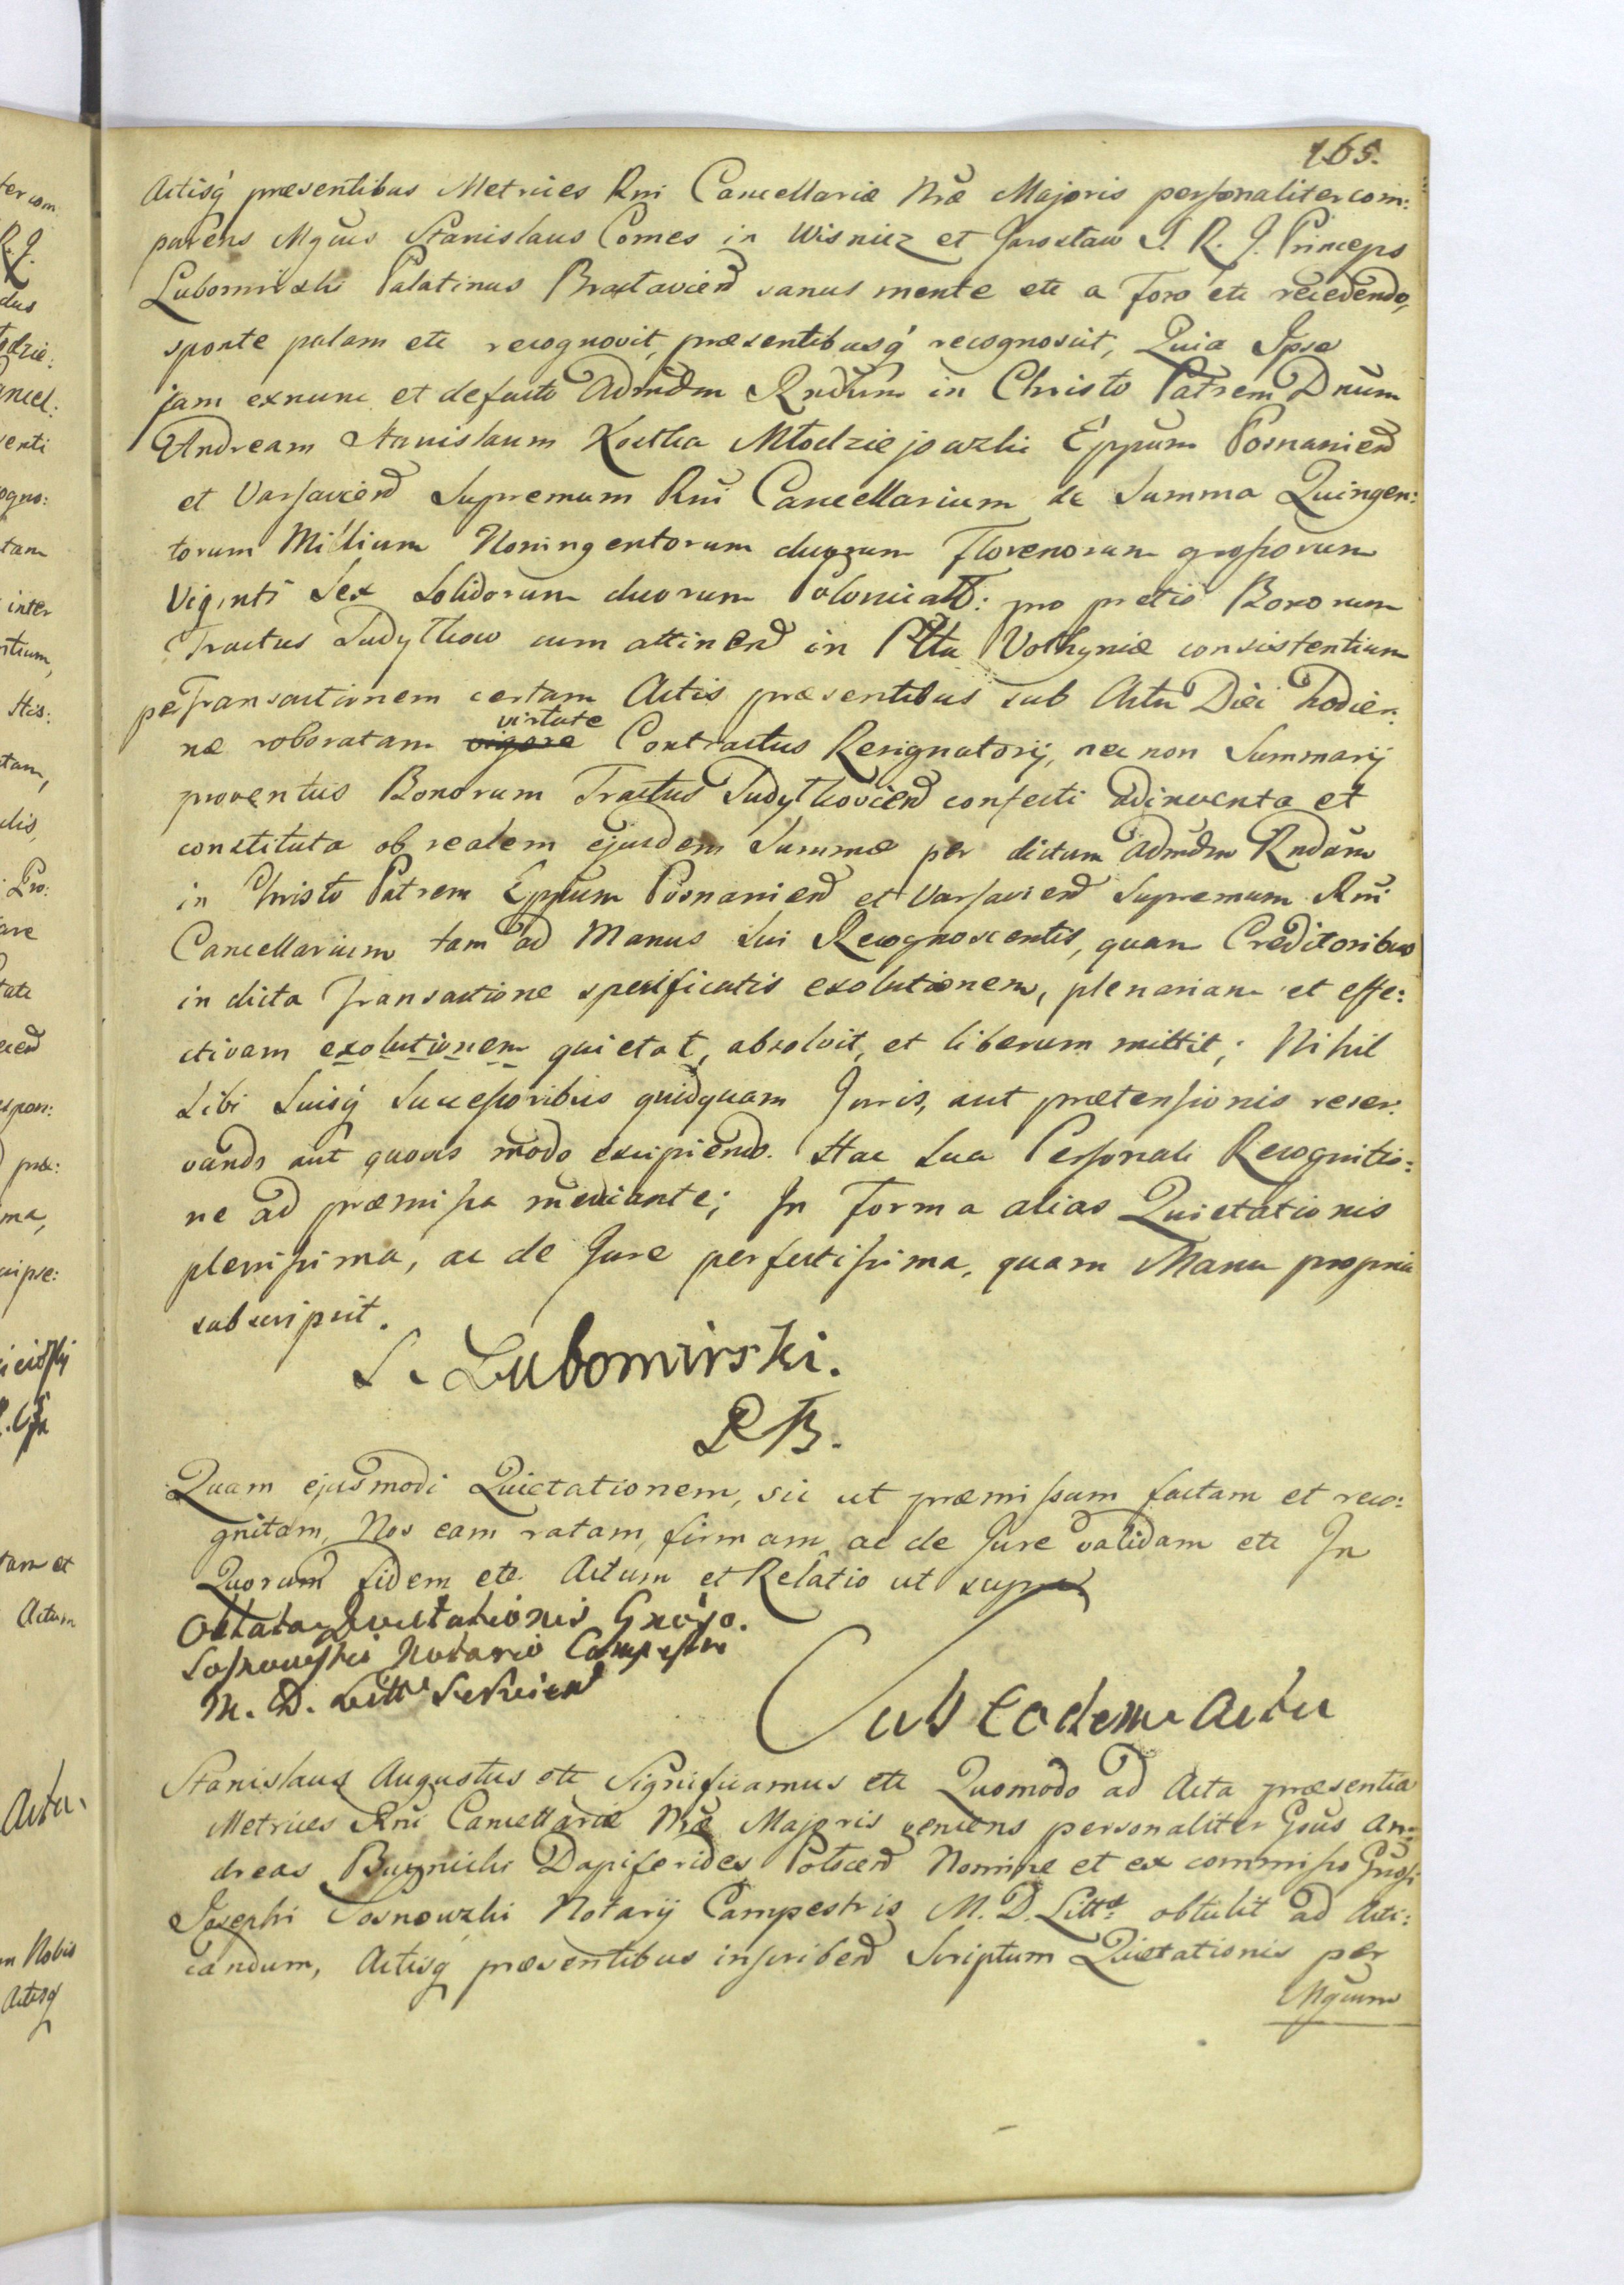 165.
Actisq́ præsentibus Metrices Rni Cancellariæ Nræ Majoris personaliter com:
parens Mgcus Stanislaus Comes in Wisnicz et Jarosław S. R. J. Princeps
Lubomirski Palatinus Bractavien sanus mente etc a Foro etc recedendo,
sponte palam etc recognovit, præsentibusq́ recognoscit, Quia Ipse
jam exnunc et defacto Admdm Rndum in Christo Patrem Dnum
Andream Stanislaum Kostka Młodziejowski Eppum Posnanien
et Varsavien Supremum Rni Cancellarium de Summa Quingen:
torum Millium Noningentorum duorum Florenorum grossorum
Viginti Sex Solidorum duorum Polonicall: pro pretio Bonorum
Tractus Sudyłkow cum attinen in Pttu Volhyniæ consistentium
per Transactionem certam Actis præsentibus sub Actu Diei hodier:
næ roboratam vigore virtute Contractus Resignatorij, nec non Summarij
proventus Bonorum Tractus Sudyłkovien confecti adinventa et
constituta ob realem ejusdem Summæ per dictum Admdm Rndum
in Christo Patrem Eppum Posnanien et Varsavien Supremum Rni
Cancellarium tam ad Manus Sui Recognoscentis, quam Creditoribus
in dicta Transactione specificatis exolutionem, plenariam et effe:
ctivam exolutionem quietat, absolvit, et liberum mittit; Nihil
Sibi Suisq́ Successoribus quidquam Juris, aut prætensionis reser:
vando aut quovis modo excipiendo. Hac Sua Personali Recognitio:
ne ad præmissa mediante; In Forma alias Quietationis
plenissima, ac de Jure perfectissima, quam Manu propria
subscripsit.
S. Lubomirski.
P B.
Quam ejusmodi Quietationem, sic ut præmissum factam et reco:
gnitam, Nos eam ratam, firmam, ac de Jure validam etc In
Quorum fidem etc Actum et Relatio ut supra
Oblata Quietationis Gnoso.
Sosnowski Notario Campestri
M. D. Litt Servien
Sub Eodem Actu
Stanislaus Augustus etc Significamus etc Quomodo ad Acta præsentia
Metrices Rni Cancellariæ Nræ Majoris veniens personaliter Gsus An:
dreas Dapiferides Nomine et ex commisso Gnosi
Josephi Sosnowski Notarij Campestris M. D. Litt: obtulit ad Acti:
candum, Actisq præsentibus inscriben Scriptum Quietationis per
Mgcum